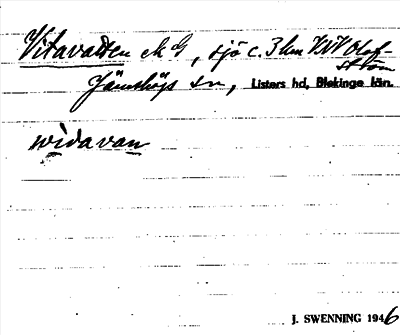 Vitavatten ek G, sjö c. 3 km NV Olof-
ström
Jämshögs sn, Listers hd, Blekinge län.
widavan
J. SWENNING 1946